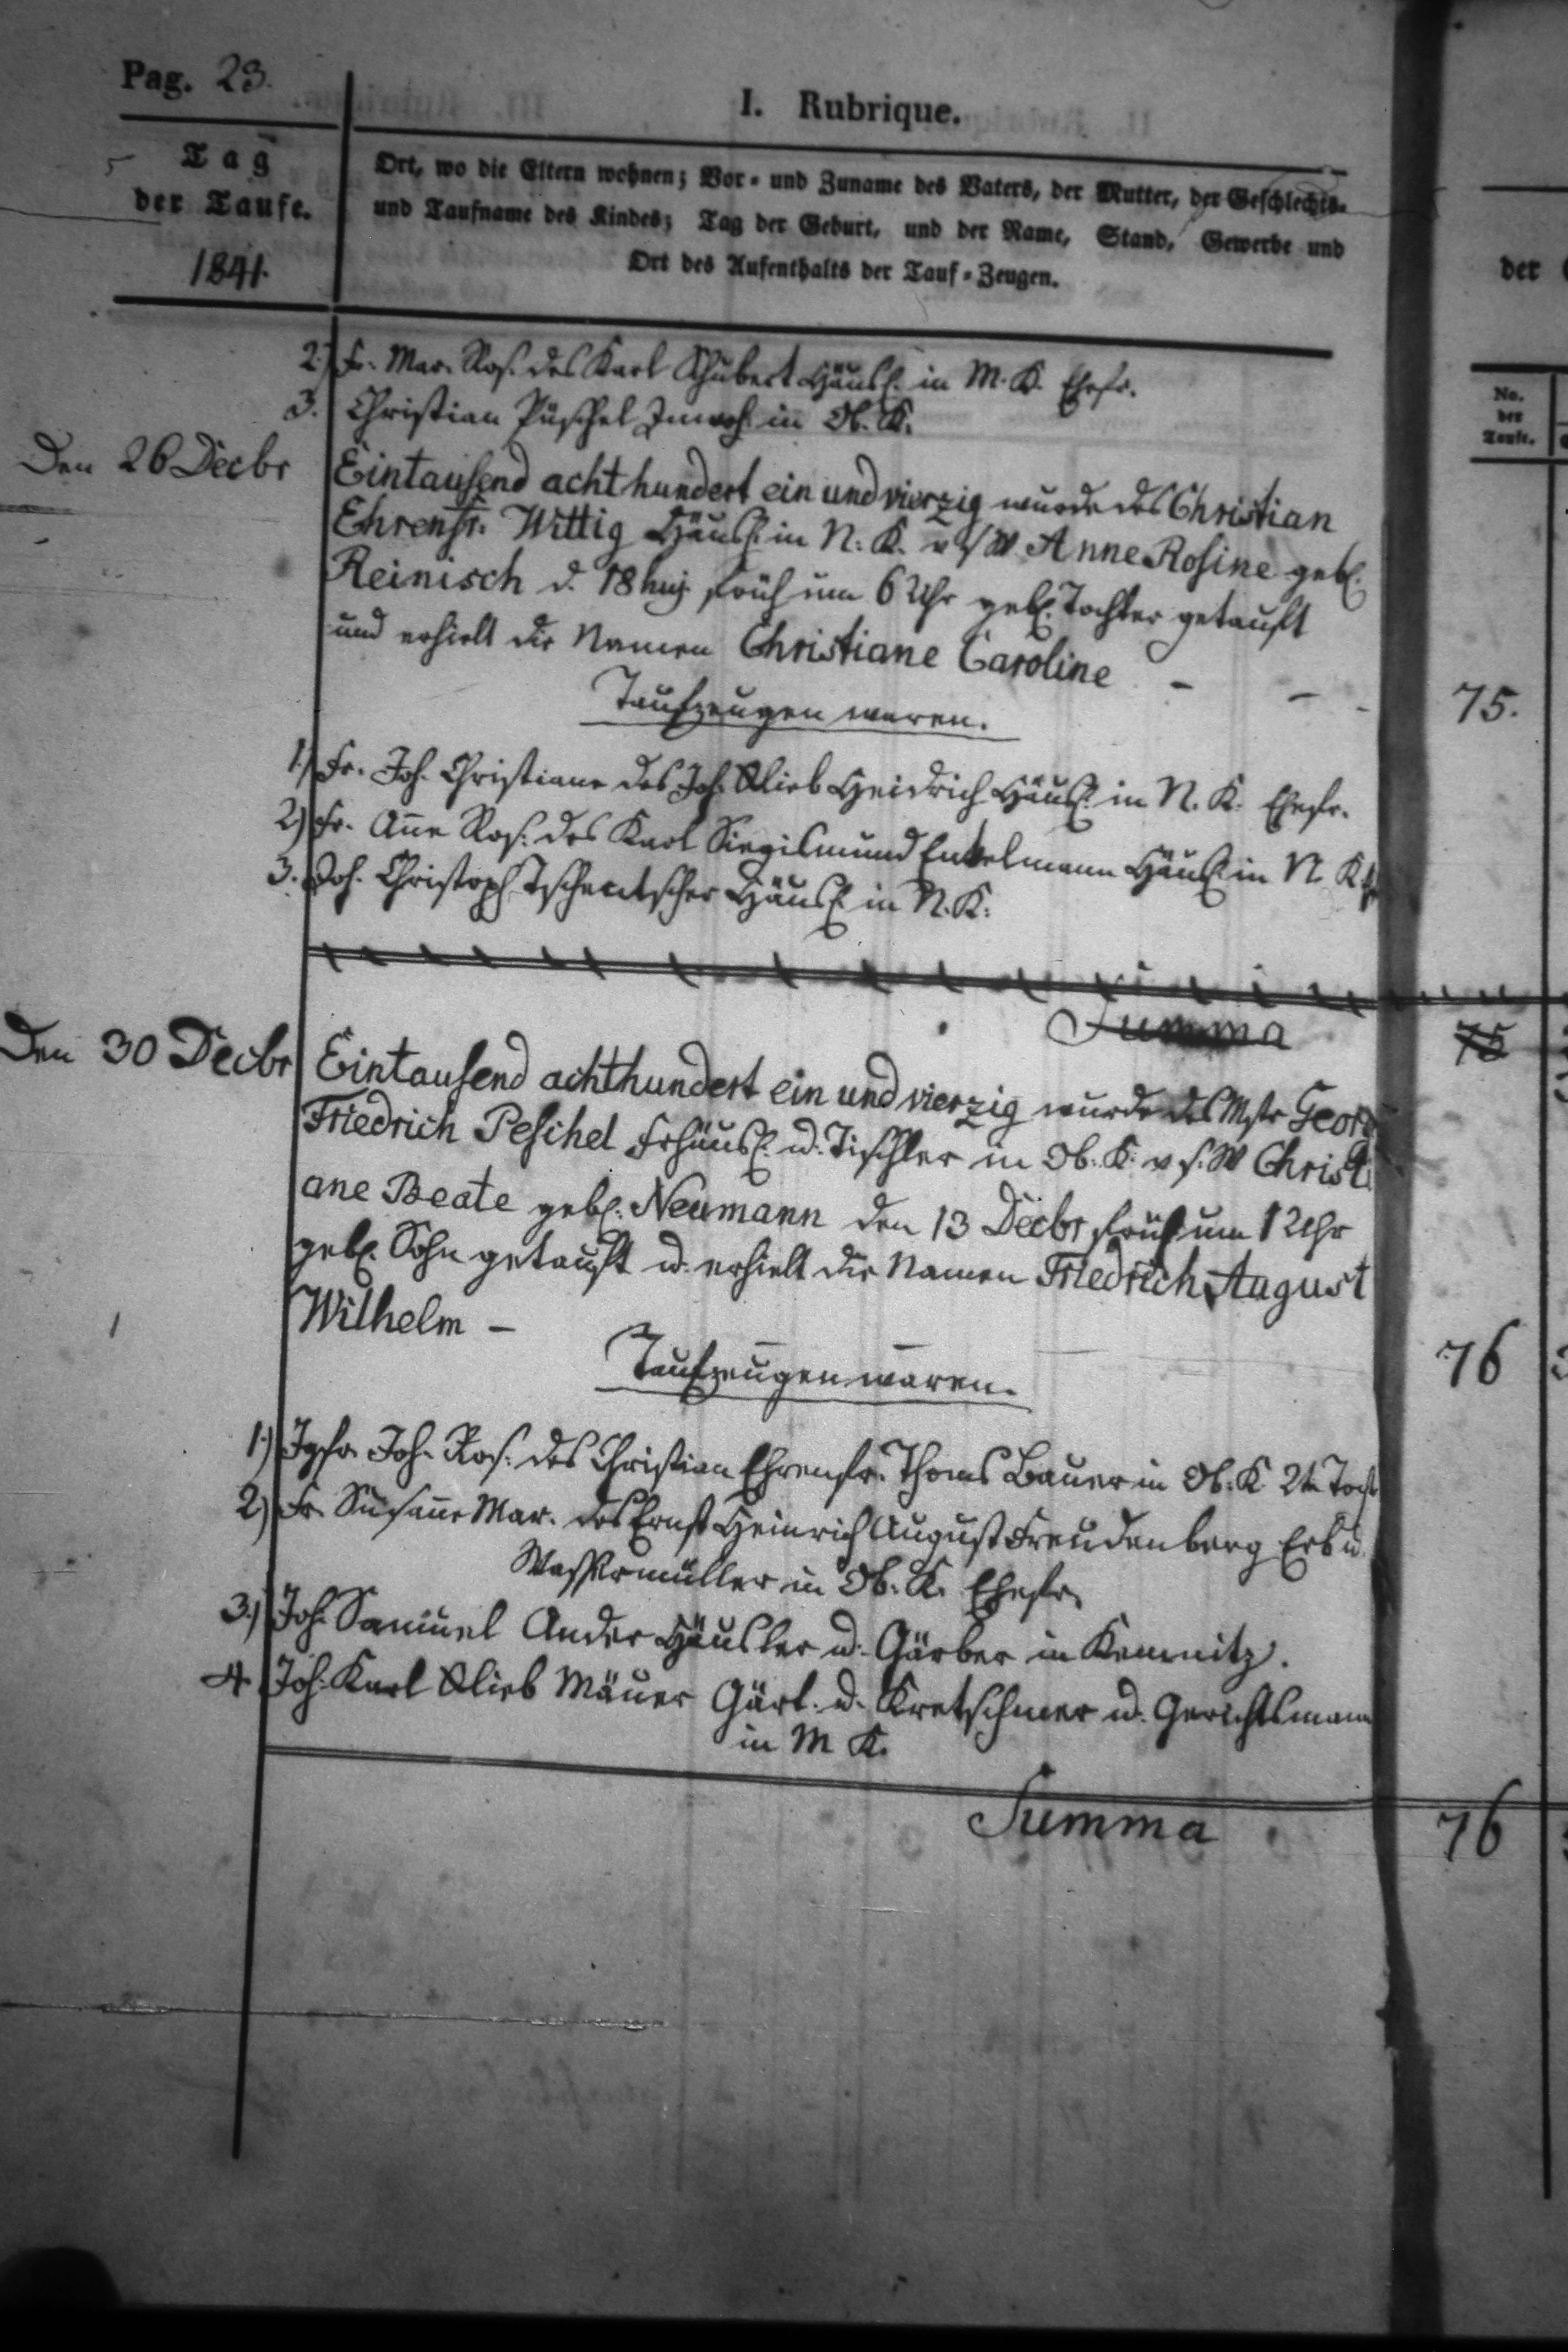 Pag. 23.
I. Rubrique.
Tag
der Taufe.
1841.
Ort, wo die Eltern wohnen; Vor- und Zuname des Vaters, der Mutter, der Geschlechts-
und Taufname des Kindes; Tag der Geburt, und der Name, Stand, Gewerbe und
Ort des Aufenthalts der Tauf-Zeugen.
2.) Fr. Mar. Ros. des Karl Schubert Häusl. in M. K. Ehefr.
3. Christian Püschel Inwoh. in Ob. K.
Den 26 Decbr Eintausend achthundert ein und vierzig wurde des Christian
Ehrenfr. Wittig Häusl. in N. K. v s/W Anne Rosine geb.
Reinisch d. 18 huj früh um 6 Uhr geb. Tochter getauft
und erhielt die Namen Christiane Caroline - -
Taufzeugen waren.
1.) Fr. Joh. Christiane des Joh. Glieb Heidrich Häusl. in N. K. Ehefr.
2) Fr. Anne Ros. des Karl Siegismund Enkelmann Häusl. in N. K
3. Joh. Christoph Tschentscher Häusl. in N. K.
Summa
Den 30 Decbr Eintausend achthundert ein und vierzig wurde des Mstr Georg
Friedrich Peschel Frhäusl. u. Tischler in Ob. K. v s. W Christi
ane Beate geb. Neumann den 13 Decbr früh um 1 Uhr
geb. Sohn getauft u. erhielt die Namen Friedrich August
Wilhelm -
Taufzeugen waren.
1.) Jgfr. Joh. Ros. des Christian Ehrenfr. Thoms Bauer in Ob. K. 2te Tocht
2) Fr. Susanne Mar. des Ernst Heinrich August Freudenberg Erb u.
Wassermüller in Ob. K. Ehefr.
3.) Joh. Samuel Ander Häusler u. Gärber in Kemnitz.
4. Joh. Karl Glieb Mäuer Gärt. u. Kretschmer u. Gerichtsmann
in M K.
Summa
der
No.
der
Taufe.
75.
75
76
76